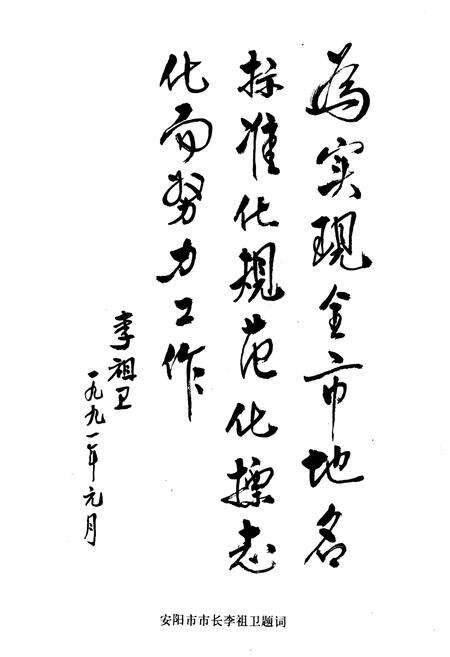 為实现全市地名
标准化规范化标志
化而努力工作
李祖卫
一九九一年元月
安阳市市长李祖卫题词